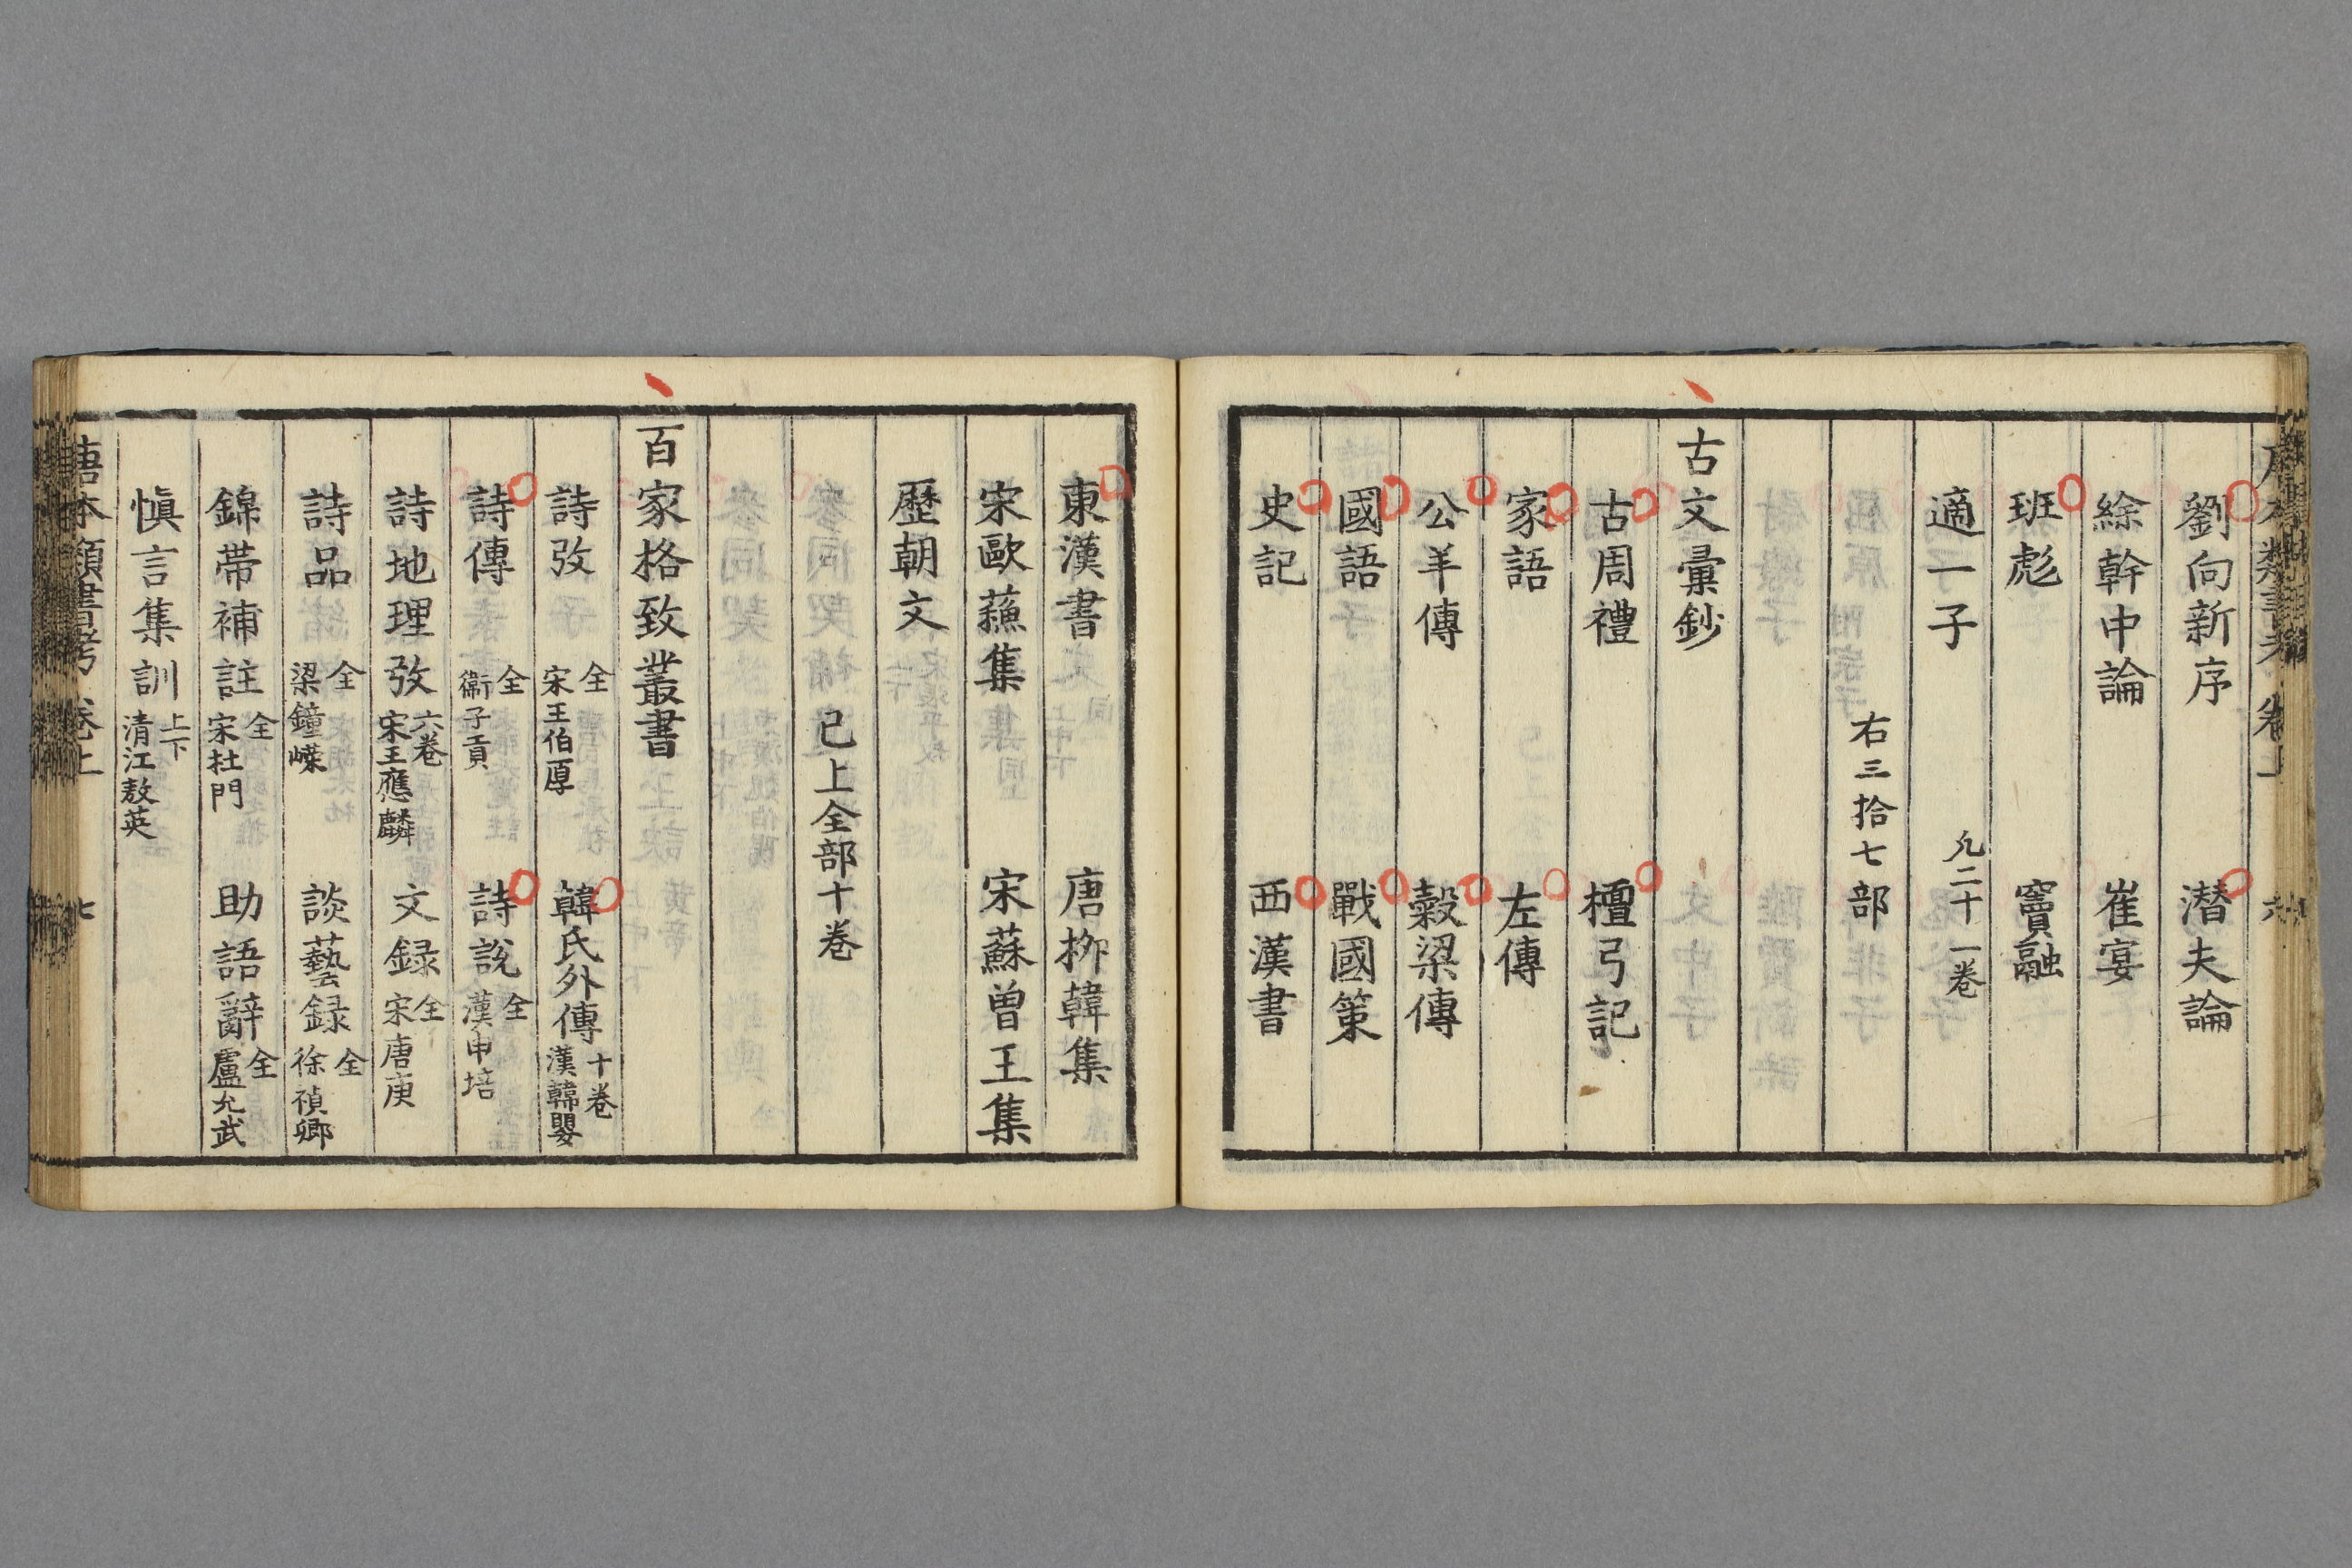 劉向新序　潜夫論
綜幹中論　崔寔
班彪　竇融
適一子　凢二十一巻
右三拾七部
古文彙鈔
古周禮　檀弓記
家語　左傳
公羊傳　穀梁傳
國語　戰國策
史記　西漢書
東漢書　唐柳韓集
宋歐蘓集　宋蘇曽王集
歷朝文
已上全部十巻
百家格致叢書
詩攷 全 宋王伯厚　韓氏外傳 十巻 漢韓嬰
詩傳 全 衞子貢　詩說 全 漢申培
詩地理攷 六巻 宋王應麟　文録 全 宋唐庚
詩品 全 梁鐘嶸　談藝録 全 徐禎卿
錦帯補註 全 宋杜門　助語辭 全 盧允武
慎言集訓 上下 清江敖英
唐本類書考 巻上 七